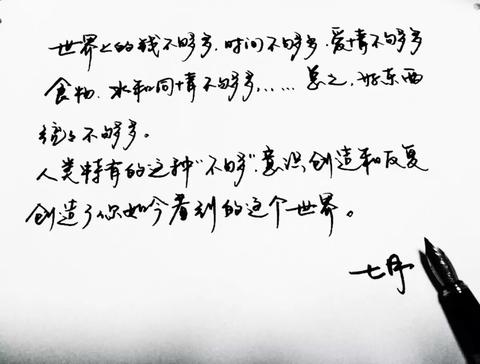 世界上的钱不够多,时间不够多,爱情不够多
食物、水和同情不够多,……总之,好东西
统统不够多。
人类特有的这种“不够”意识创造和反复
创造了你如今看到的这个世界。
七月